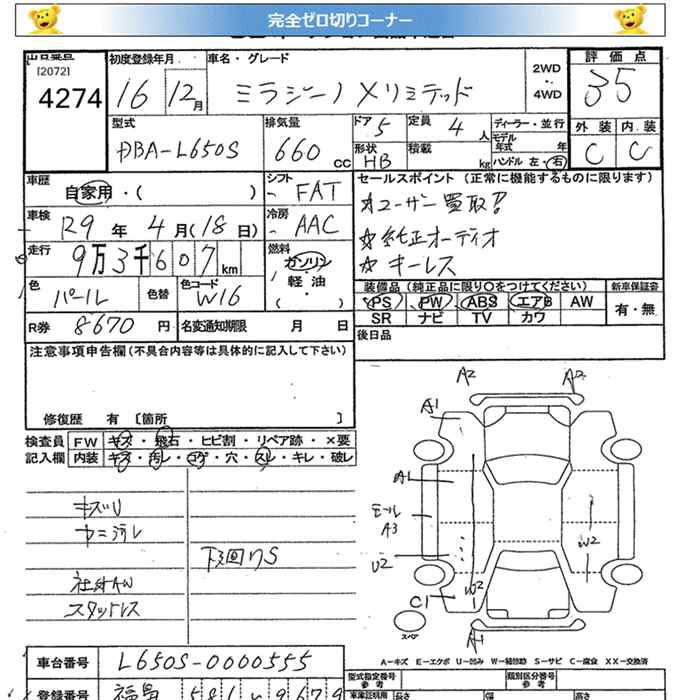 完全ゼロ切りコーナー
出品番号
[2072]
4274
初度登録年月
16 12月
車名・グレード
ミラジーノ Xリミテッド
2WD
・
4WD
評価点
35
型式
DBA-L650S
排気量
660 CC
ドア 5
定員 4 人
形状 HB
積載 kg
ディーラー・並行
モデル年式 年式
ハンドル 左・右
外装 内装
C C
車歴
自家用・( )
シフト
- FAT
セールスポイント (正常に機能するものに限ります)
☆ユーザー買取!!
☆純正オーディオ
☆キーレス
車検
R9 年 4 月(18 日)
冷房
- AAC
走行
9万3千607km
燃料
ガソリン
軽油
( ・ )
色
パール
色替
色コード
W16
装備品 (純正品に限り○をつけてください)
新車保証書
PS PW ABS エアB AW
SR ナビ TV カワ
有・無
R券 8670 円
名変通知期限 月 日
後日品
注意事項申告欄(不具合内容等は具体的に記入して下さい)
修復歴 有 〔箇所 〕
検査員 FW キズ・飛石・ヒビ割・リペア跡・×要
記入欄 内装 キズ・汚レ・コゲ・穴・スレ・キレ・破レ
キズU
ヤニ汚レ
下廻りS
社外AW
スタッドレス
A2
A1
A1
モール
A3
U2
C1
W2
W2
A1
スペア
A-キズ E-エクボ U-凹み W-補修跡 S-サビ C-腐食 XX-交換済
車台番号 L650S-0000555
型式指定番号
参考
類別区分番号
参考
登録番号 福島 581 9679
車庫証明用 長さ 幅 高さ